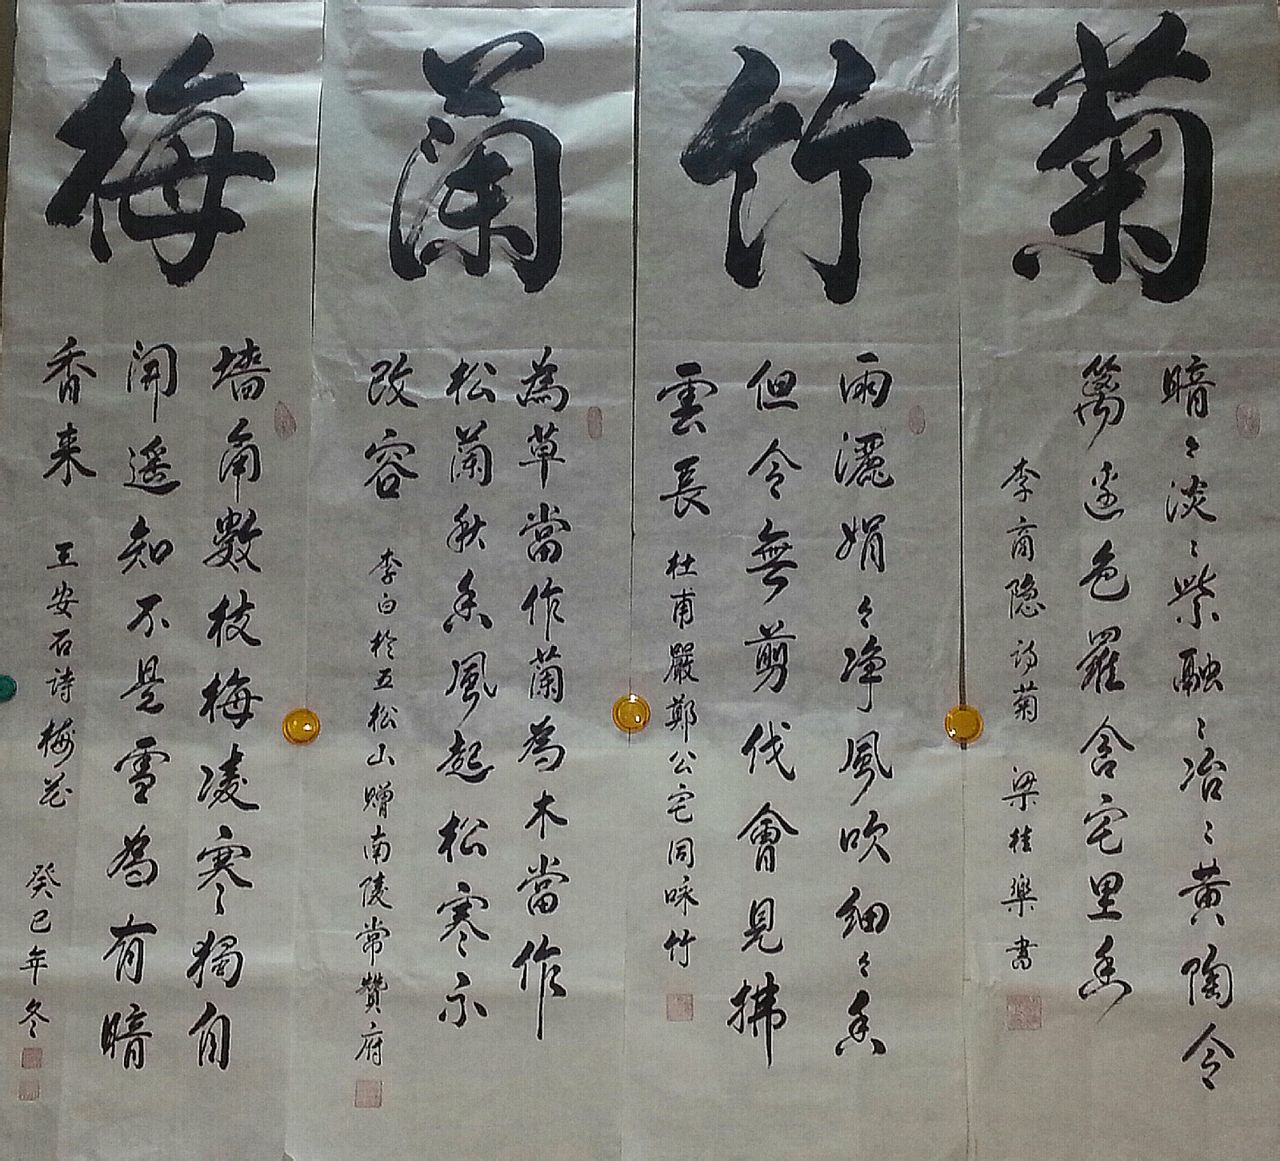 梅
墻角數枝梅凌寒獨自
開遥知不是雪為有暗
香来 王安石诗梅花 癸巳年冬
蘭
為草當作蘭為木當作
松蘭秋香風起松寒不
改容 李白於五松山贈南陵常贊府
竹
雨灑娟々净風吹細々香
但令無剪伐會見拂
雲長 杜甫嚴鄭公宅同咏竹
菊
暗々淡々紫融々冶々黄陶令
篱邊色羅含宅里香
李商隐诗菊 梁桂樂書